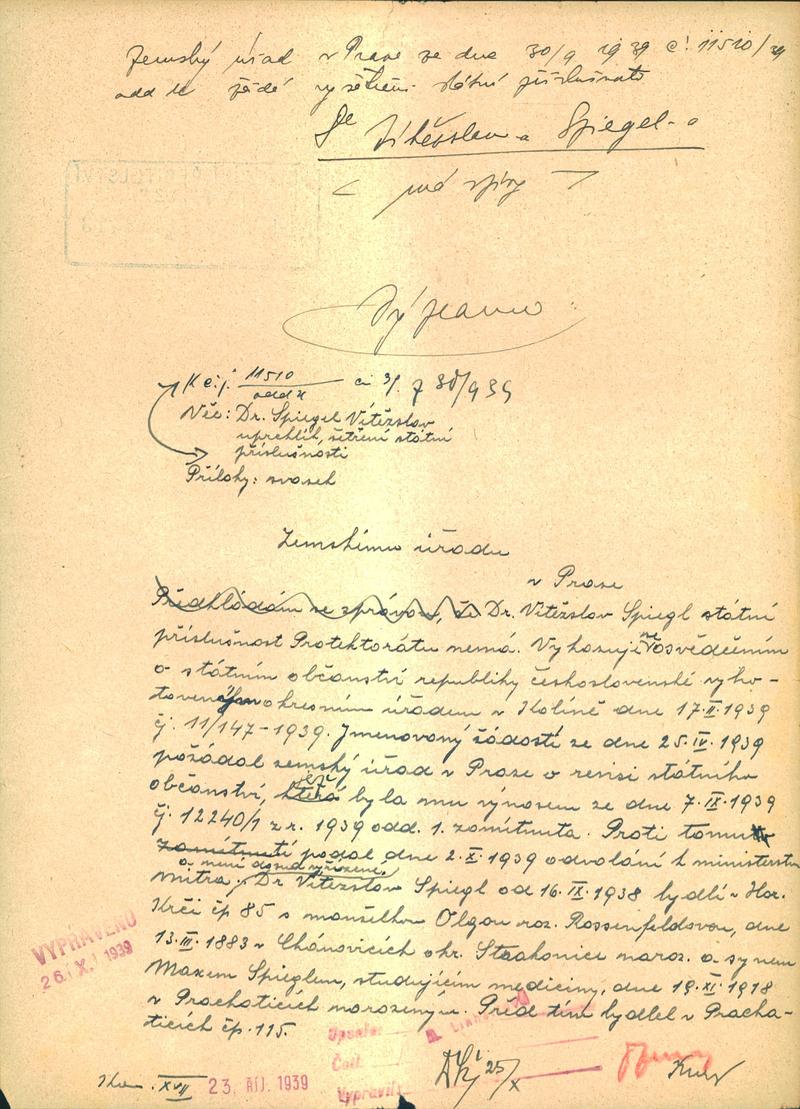 Zemský úřad v Praze ze dne 30/9 1939 č. 11510/39
odd. žádá vyšetření státní příslušnosti
Dr Vítězslava Spiegel-a
Výpravna
K č.j. 11510 ai 39 z 30/9 39
Věc: Dr. Spiegel Vítězslav
uprchlík, šetření státní
příslušnosti
Přílohy: svazek
Zemskému úřadu
v Praze
Předkládám se zprávou, že Dr. Vítězslav Spiegl státní
příslušnost Protektorátu nemá. Vykazuje se osvědčením
o státním občanství republiky československé vyho-
toveným okresním úřadem v Kolíně dne 17.II.1939
čj. 11/147-1939. Jmenovaný žádostí ze dne 25.IV.1939
požádal zemský úřad v Praze o revisi státního
občanství, jež byla mu výnosem ze dne 7.IX.1939
čj. 12240/1 z r. 1939 odd. 1. zamítnuta. Proti tomu
zamítnutí podal dne 2.X.1939 odvolání k ministerstvu
a není dosud vyřízeno.
vnitra. Dr Vítězslav Spiegl od 16.IX.1938 bydlí v Hor.
Krči čp 85 s manželkou Olgou roz. Rossenfeldovou, dne
13.III.1883 v Chánovicích okr. Strakonice naroz. a synem
Maxem Spieglem, studujícím mediciny, dne 19.XI.1918
v Prachaticích narozeným. Před tím bydlel v Pracha-
ticích čp. 115.
VYPRAVENO
26. X. 1939
Opsal:
Četl:
Vypravil:
25/X
XVII 23. ŘÍJ. 1939